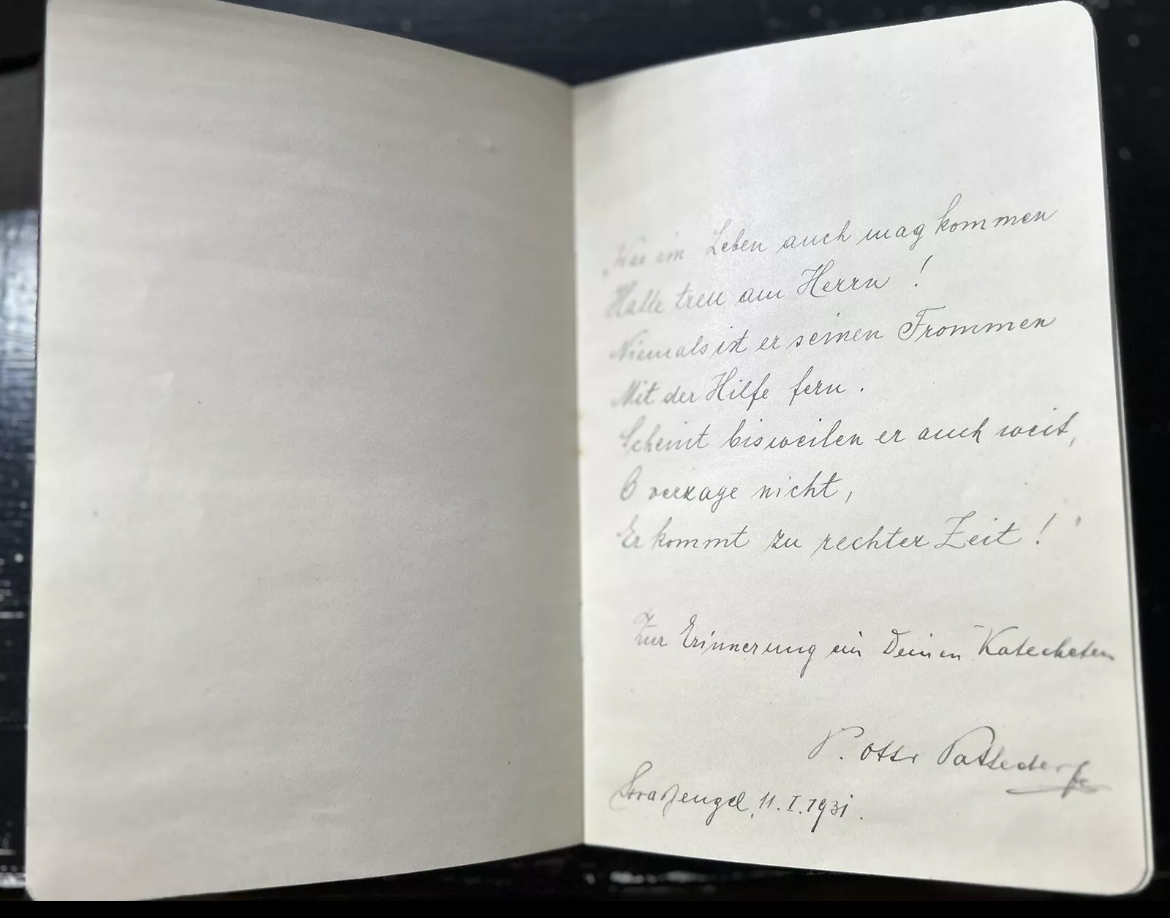 „Was im Leben auch mag kommen
Halte treu am Herrn!
Niemals ist er seinen Frommen
Mit der Hilfe fern.
Scheint bisweilen er auch weit,
O verzage nicht,
Er kommt zu rechter Zeit!"
Zur Erinnerung an Deinen Katecheten
P. Otto
11.I.1931.